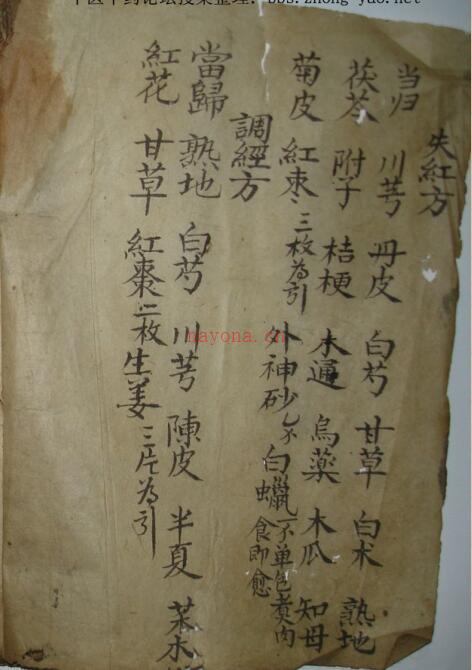 中医中药论坛搜集整理: bbs.zhong-yao.net
失紅方
当归 川芎 丹皮 白芍 甘草 白术 熟地
茯苓 附子 桔梗 木通 烏藥 木瓜 知母
菊皮 紅枣三枚為引 外神砂乙不 白蠟一不单包煮肉食即愈
調經方
當歸 熟地 白芍 川芎 陳皮 半夏
紅花 甘草 紅棗二枚 生姜三片為引
nayona.cn